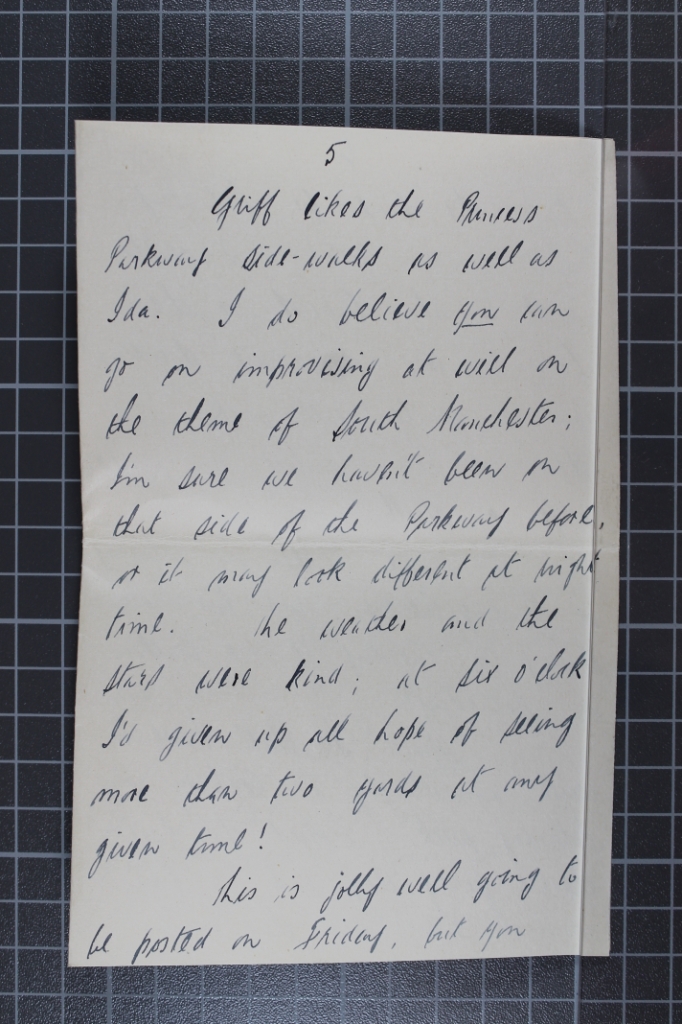 5
Griff likes the Princess
Parkway side-walks as well as
Ida. I do believe you can
go on improvising at will on
the theme of South Manchester;
I'm sure we haven't been on
that side of the Parkway before,
or it may look different at night
time. The weather and the
stars were kind; at six o'clock
I'd given up all hope of seeing
more than two yards at any
given time!
This is jolly well going to
be posted on Friday, but you